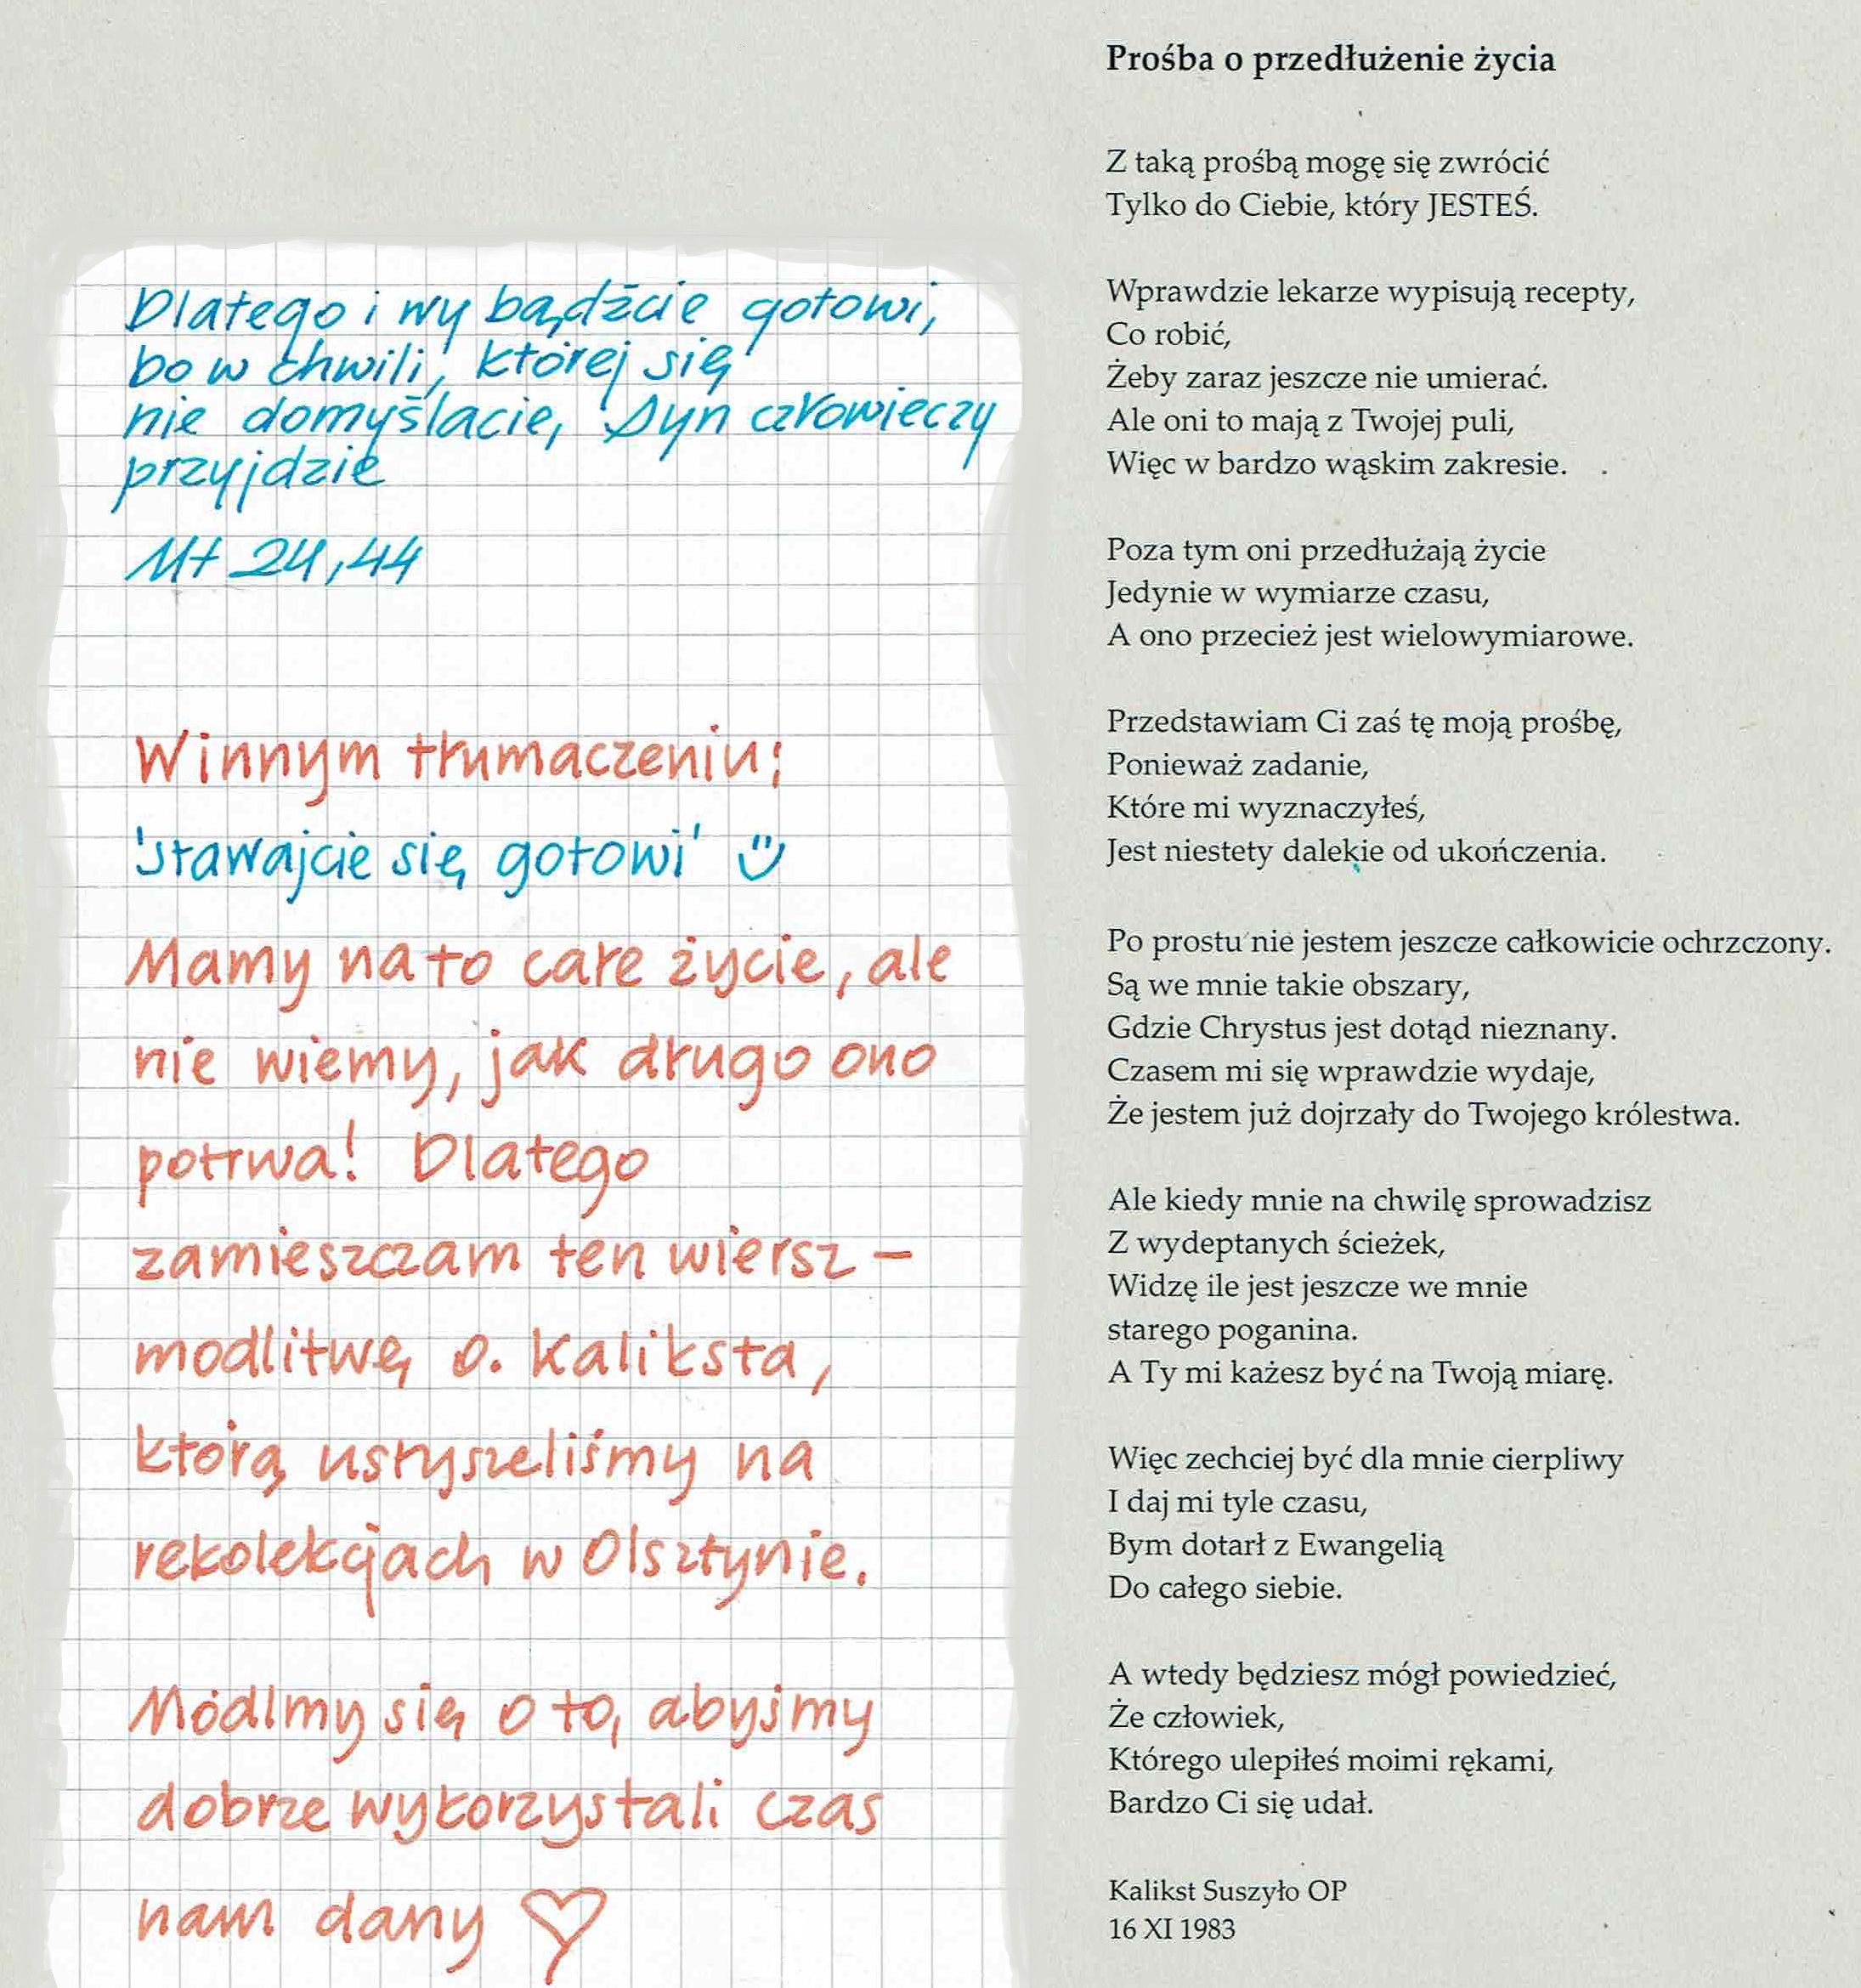 Dlatego i wy bądźcie gotowi,
bo w chwili, której się
nie domyślacie, Syn człowieczy
przyjdzie
Mt 24,44
W innym tłumaczeniu:
'stawajcie się gotowi' ツ
Mamy na to całe życie, ale
nie wiemy, jak długo ono
potrwa! Dlatego
zamieszczam ten wiersz –
modlitwę o. Kaliksta,
którą usłyszeliśmy na
rekolekcjach w Olsztynie.
Módlmy się o to, abyśmy
dobrze wykorzystali czas
nam dany ♡
Prośba o przedłużenie życia
Z taką prośbą mogę się zwrócić
Tylko do Ciebie, który JESTEŚ.
Wprawdzie lekarze wypisują recepty,
Co robić,
Żeby zaraz jeszcze nie umierać.
Ale oni to mają z Twojej puli,
Więc w bardzo wąskim zakresie.
Poza tym oni przedłużają życie
Jedynie w wymiarze czasu,
A ono przecież jest wielowymiarowe.
Przedstawiam Ci zaś tę moją prośbę,
Ponieważ zadanie,
Które mi wyznaczyłeś,
Jest niestety dalekie od ukończenia.
Po prostu nie jestem jeszcze całkowicie ochrzczony.
Są we mnie takie obszary,
Gdzie Chrystus jest dotąd nieznany.
Czasem mi się wprawdzie wydaje,
Że jestem już dojrzały do Twojego królestwa.
Ale kiedy mnie na chwilę sprowadzisz
Z wydeptanych ścieżek,
Widzę ile jest jeszcze we mnie
starego poganina.
A Ty mi każesz być na Twoją miarę.
Więc zechciej być dla mnie cierpliwy
I daj mi tyle czasu,
Bym dotarł z Ewangelią
Do całego siebie.
A wtedy będziesz mógł powiedzieć,
Że człowiek,
Którego ulepiłeś moimi rękami,
Bardzo Ci się udał.
Kalikst Suszyło OP
16 XI 1983